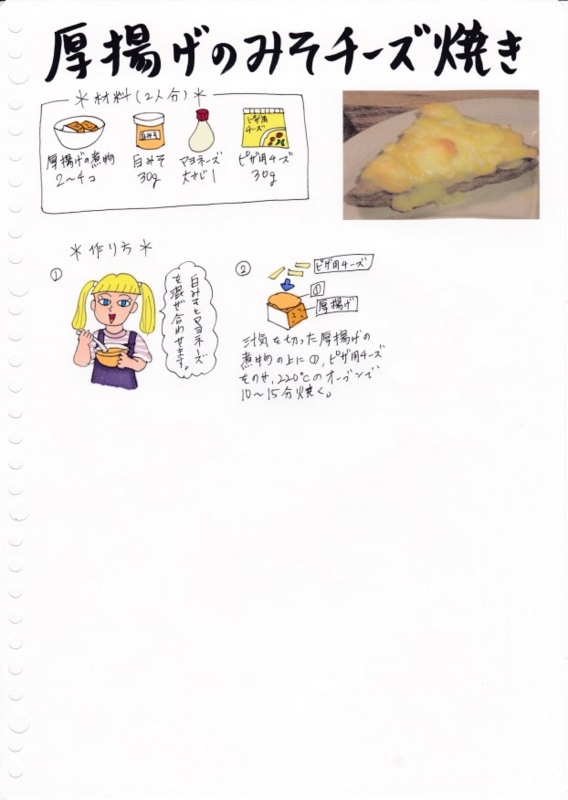 厚揚げのみそチーズ焼き
＊材料(2人分)＊
白みそ
ピザ用
チーズ
厚揚げの煮物
2〜4コ
白みそ
30g
マヨネーズ
大さじ1
ピザ用チーズ
30g
＊作り方＊
①
白みそとマヨネーズ
を混ぜ合わせます。
②
ピザ用チーズ
①
厚揚げ
汁気を切った厚揚げの
煮物の上に①、ピザ用チーズ
をのせ、220℃のオーブンで
10〜15分焼く。